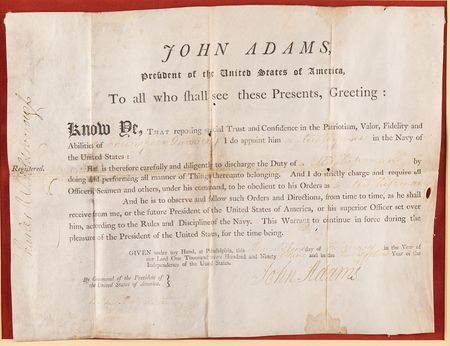 JOHN ADAMS,
President of the United States of America,
To all who shall see these Presents, Greeting :
Know Ye, THAT reposing special Trust and Confidence in the Patriotism, Valor, Fidelity and
Abilities of I do appoint him in the Navy of
the United States :
Registered.
He is therefore carefully and diligently to discharge the Duty of
doing and performing all manner of Things thereunto belonging. And I do strictly charge and require all
Officers, Seamen and others, under his command, to be obedient to his Orders as
And he is to observe and follow such Orders and Directions, from time to time, as he shall
receive from me, or the future President of the United States of America, or his superior Officer set over
him, according to the Rules and Discipline of the Navy. This Warrant to continue in force during the
pleasure of the President of the United States, for the time being.
GIVEN under my Hand, at Philadelphia, this day of in the Year of
our Lord One Thousand seven Hundred and Ninety and in the Year of the
Independence of the United States.
John Adams
By Command of the President of
the United States of America.